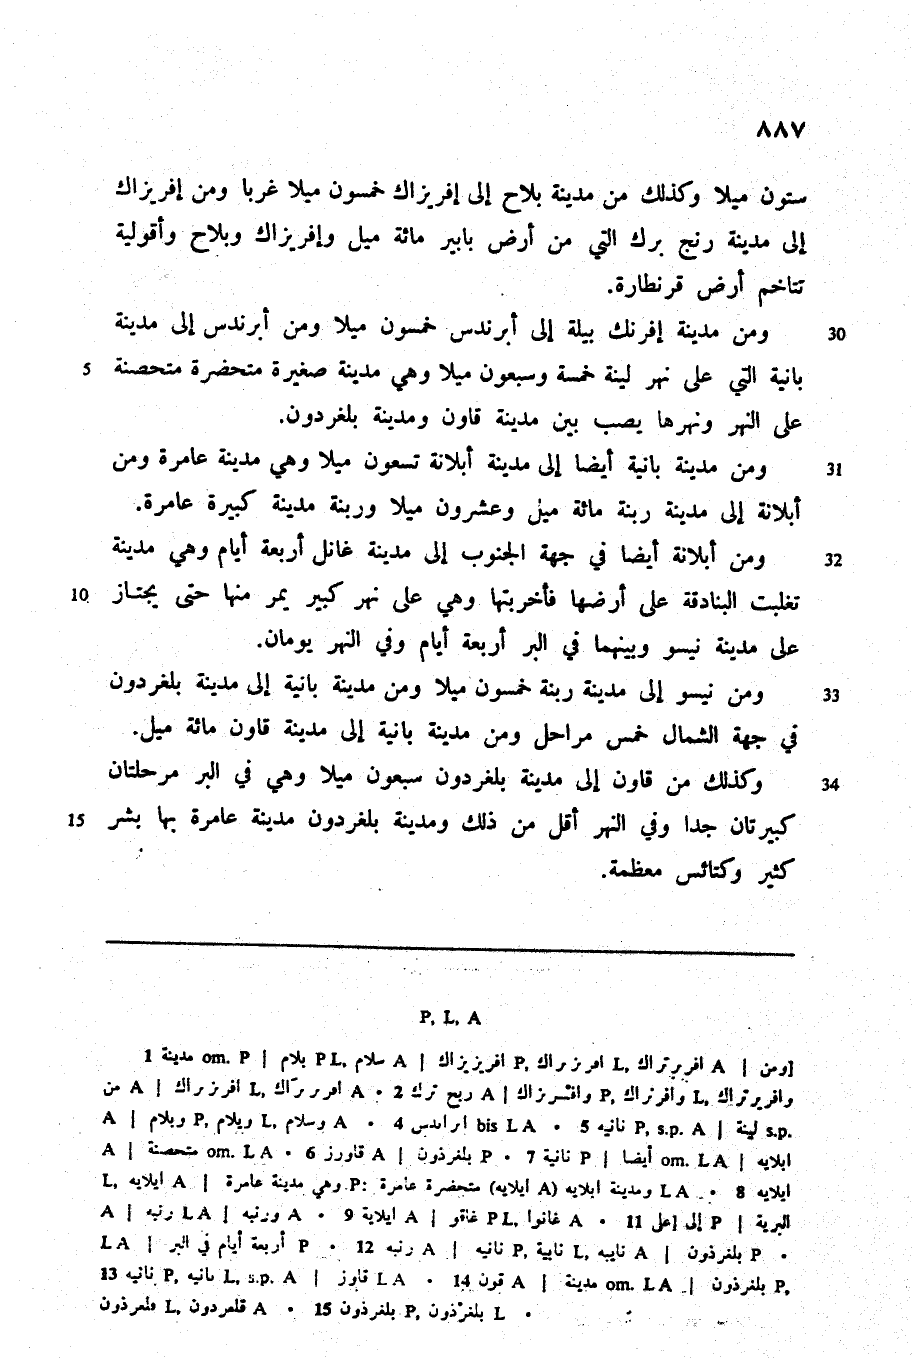 ٨٨٧
ستون ميلا وكذلك من مدينة بلاح إلى إفريزاك خمسون ميلا غربا ومن إفريزاك
إلى مدينة رنج برك التي من أرض بابير مائة ميل وإفريزاك وبلاح وأقولية
تتاخم أرض قرنطارة.
30 ومن مدينة إفرنك بيلة إلى أبرندس خمسون ميلا ومن أبرندس إلى مدينة
بانية التي على نهر لينة خمسة وسبعون ميلا وهي مدينة صغيرة متحضرة متحصنة 5
على النهر ونهرها يصب بين مدينة قاون ومدينة بلغردون.
31 ومن مدينة بانية أيضا إلى مدينة أبلانة تسعون ميلا وهي مدينة عامرة ومن
أبلانة إلى مدينة ربنة مائة ميل وعشرون ميلا وربنة مدينة كبيرة عامرة.
32 ومن أبلانة أيضا في جهة الجنوب إلى مدينة غانل أربعة أيام وهي مدينة
تغلبت البنادقة على أرضها فأخربتها وهي على نهر كبير يمر منها حتى يجتاز 10
على مدينة نيسو وبينهما في البر أربعة أيام وفي النهر يومان.
33 ومن نيسو إلى مدينة ربنة خمسون ميلا ومن مدينة بانية إلى مدينة بلغردون
في جهة الشمال خمس مراحل ومن مدينة بانية إلى مدينة قاون مائة ميل.
34 وكذلك من قاون إلى مدينة بلغردون سبعون ميلا وهي في البر مرحلتان
كبيرتان جدا وفي النهر أقل من ذلك ومدينة بلغردون مدينة عامرة بها بشر 15
كثير وكنائس معظمة.
P, L, A
1 مدينة om. P | بلام PL, سلام A | افريزيزاك P, | A [ومن
A | من
bis L A • 5 نانيه P, s.p. A | لينة s.p.
om. L A • 6 قاورز A | بلغرذون P • 7 نانية P | أيضا om. L A |
ابلايه 8 • L A ومدينة ابلايه (A ابلايه) متحضرة عامرة :P وهي مدينة عامرة | A ابلايه L,
A | غاقو PL, غانوا A • 11 إلى [على P | البرية
• P بلغرذون | A | A رنبه 12 • P أربعة أيام في البر | L A
P, بلغرذون | om. L A مدينة | A قون 14 • L A قاوز | L, s.p. A
• L | P, بلغرذون 15 • A قلعردون L,